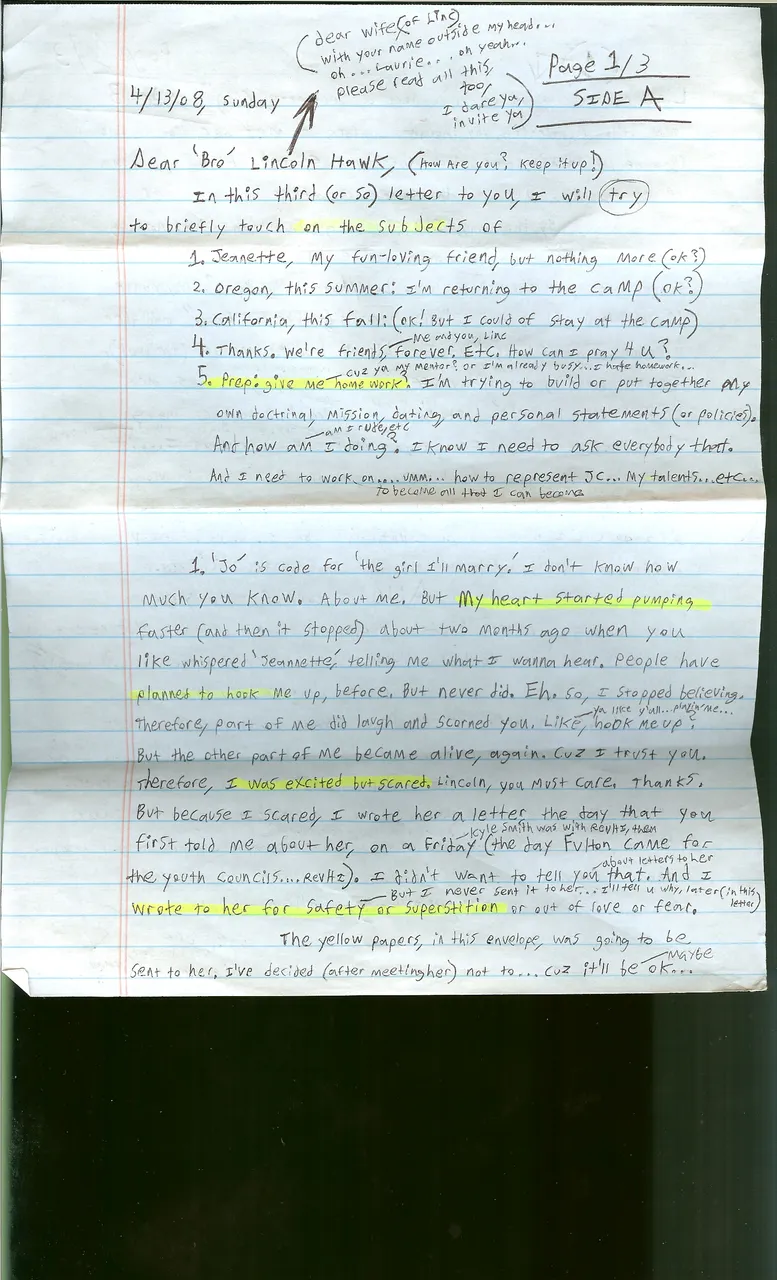 (dear wife (of Linc)
with your name outside my head...
oh... Laurie... oh yeah...
please read all this,
too,
I dare ya,
invite ya)
Page 1/3
SIDE A
4/13/08, Sunday
Dear 'Bro' Lincoln Hawk, (How Are you? Keep it up!)
In this third (or so) letter to you, I will try
to briefly touch on the subjects of
1. Jeannette, my fun-loving friend, but nothing more (ok?)
2. Oregon, this summer: I'm returning to the camp (ok?)
3. California, this fall: (ok! But I could of stay at the camp)
Me and you, Linc
4. Thanks. We're friends, forever. Etc. How can I pray 4 u?
cuz ya my mentor? or I'm already busy... I hate homework...
5. Prep: give me home work? I'm trying to build or put together my
own doctrinal, mission, dating, and personal statements (or policies).
am I rude, etc
And how am I doing? I know I need to ask everybody that.
And I need to work on.... umm... how to represent JC... My talents... etc...
to become all that I can become
1. 'Jo' is code for 'the girl I'll marry.' I don't know how
much you know. About me. But My heart started pumping
faster (and then it stopped) about two months ago when you
like whispered 'Jeannette,' telling me what I wanna hear. People have
planned to hook me up, before. But never did. Eh. So, I stopped believing.
ya like y'all... playin' me...
Therefore, part of me did laugh and scorned you. Like, hook me up?
But the other part of me became alive, again. Cuz I trust you.
Therefore, I was excited but scared. Lincoln, you must care. Thanks.
But because I scared, I wrote her a letter the day that you
Kyle Smith was with REVHI, then
first told me about her, on a Friday (the day Fulton came for
about letters to her
the youth councils.... REVHI). I didn't want to tell you that. And I
But I never sent it to her... I'll tell u why, later (in this
letter)
wrote to her for safety or superstition or out of love or fear.
The yellow papers, in this envelope, was going to be
Maybe
sent to her, I've decided (after meeting her) not to... cuz it'll be ok...